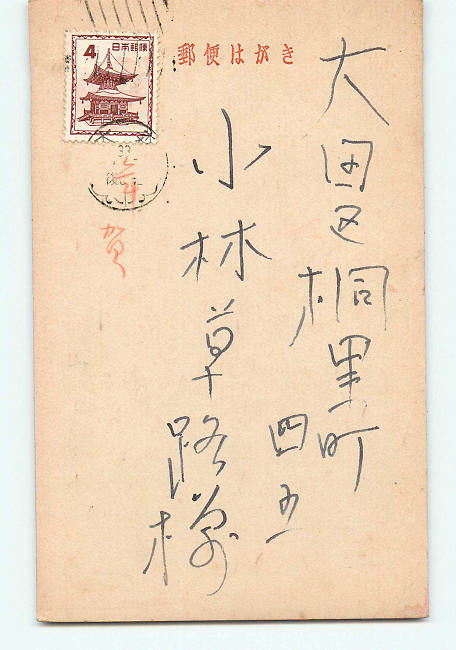 郵便はがき
4
日本郵便
年賀
大田区桐里町
四五
小林草路様
33